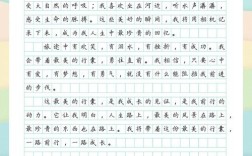 受大自然的呼吸；我喜欢坐在河边，听水声潺潺，
感受生命的脉搏。这些最美好的瞬间，我将用相机记
录下来，成为我人生中最珍贵的回忆。
旅途中有欢笑，有泪水，有挫折，有成功。我会
带着最美的行囊，勇往直前。我相信，只要心中有
爱，有梦想，有勇气，就没有什么能阻挡我前进的
步伐。
这最美的行囊，是我成长的见证，是我前行的
动力。它让我明白，人生路上，最美的风景在路上，
最珍贵的东西也在路上。我将带着这份最美的行囊，
一路前行，一路成长。